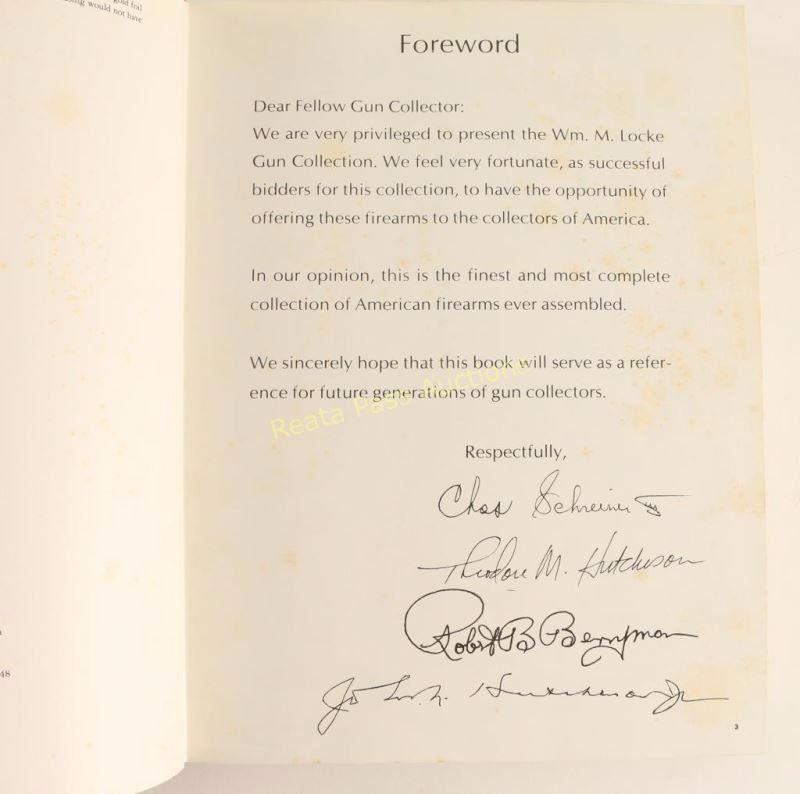 gold foil
would not have
Foreword
Dear Fellow Gun Collector:
We are very privileged to present the Wm. M. Locke
Gun Collection. We feel very fortunate, as successful
bidders for this collection, to have the opportunity of
offering these firearms to the collectors of America.
In our opinion, this is the finest and most complete
collection of American firearms ever assembled.
We sincerely hope that this book will serve as a refer-
ence for future generations of gun collectors.
Reata Pass Auctions
Respectfully,
Chas Schreiner III
Theodore M. Hutchison
Robert B Berryman
Hutchison Jr
48
3